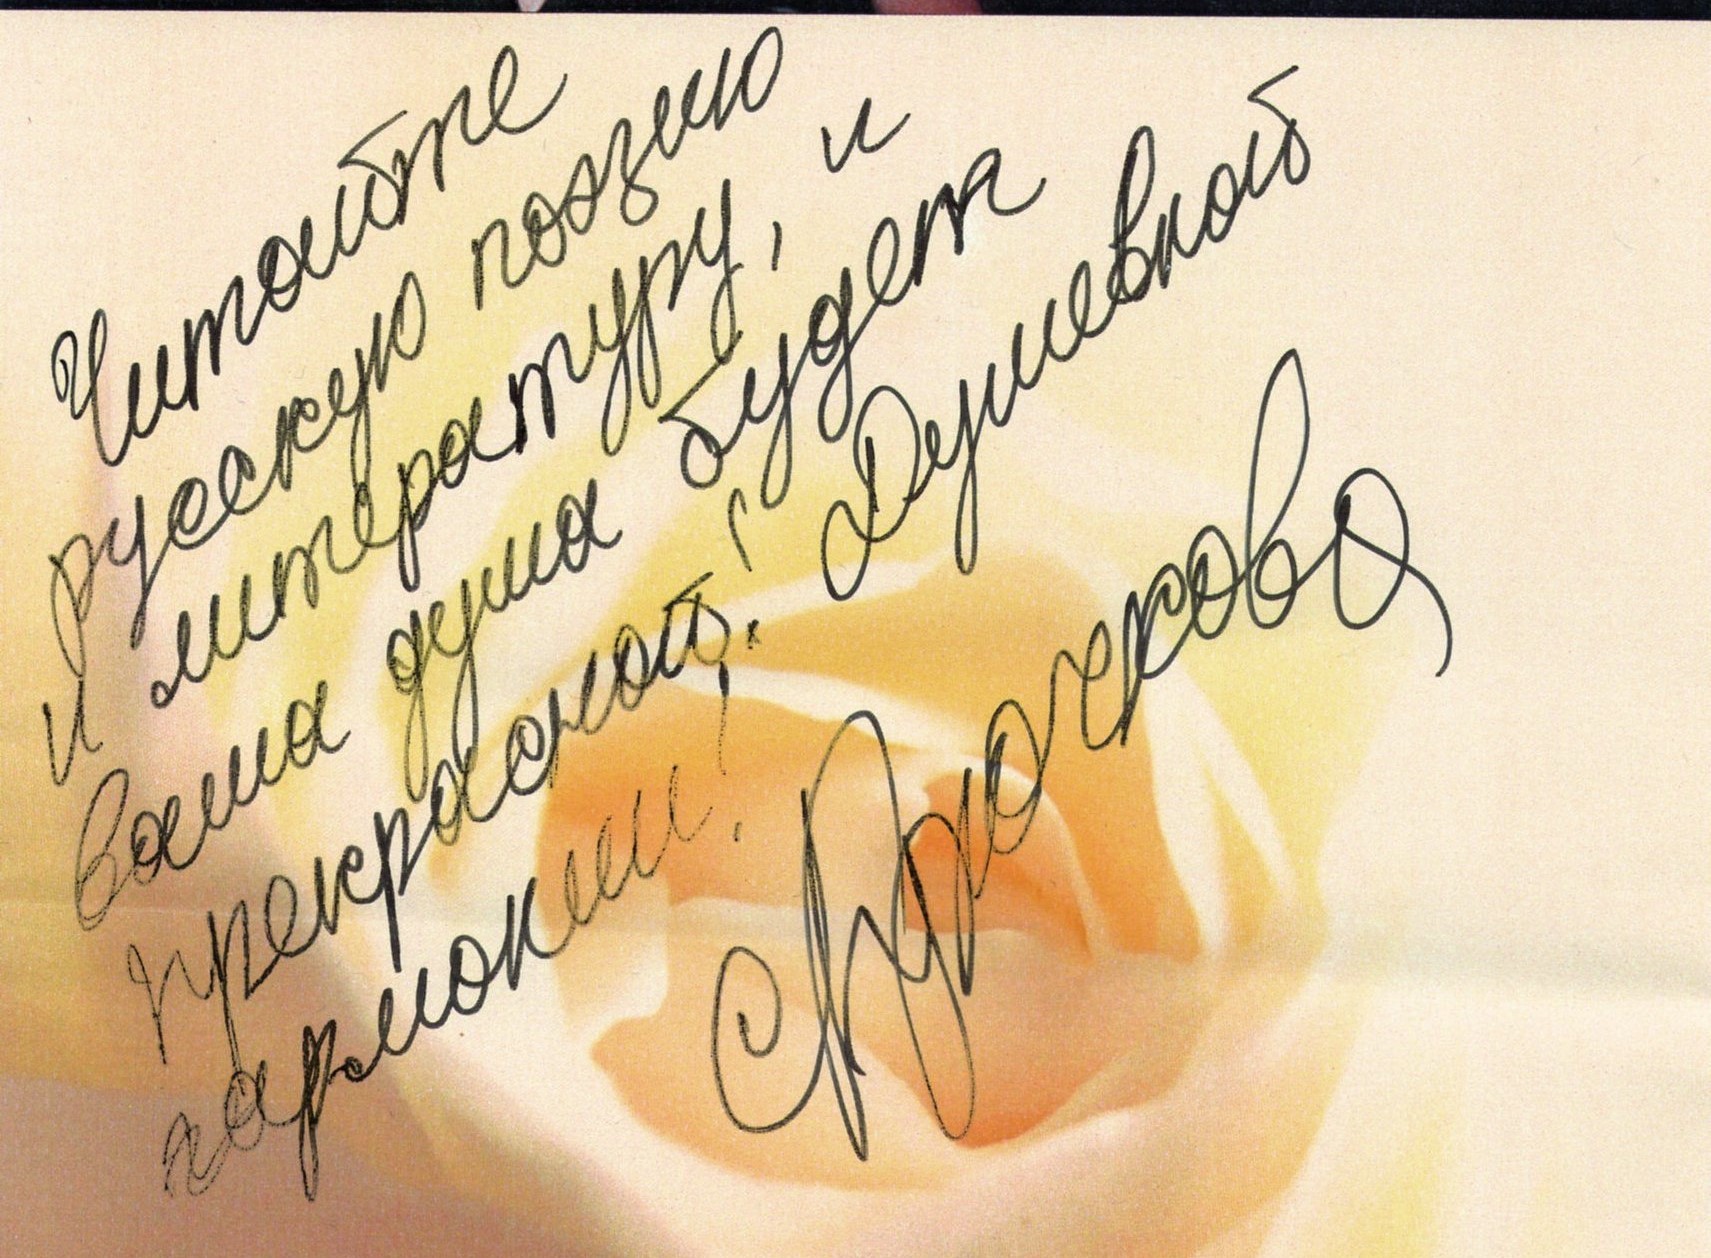 Читайте
русскую поэзию
и литературу, и
ваша душа будет
прекрасной! Душевной
гармонии!